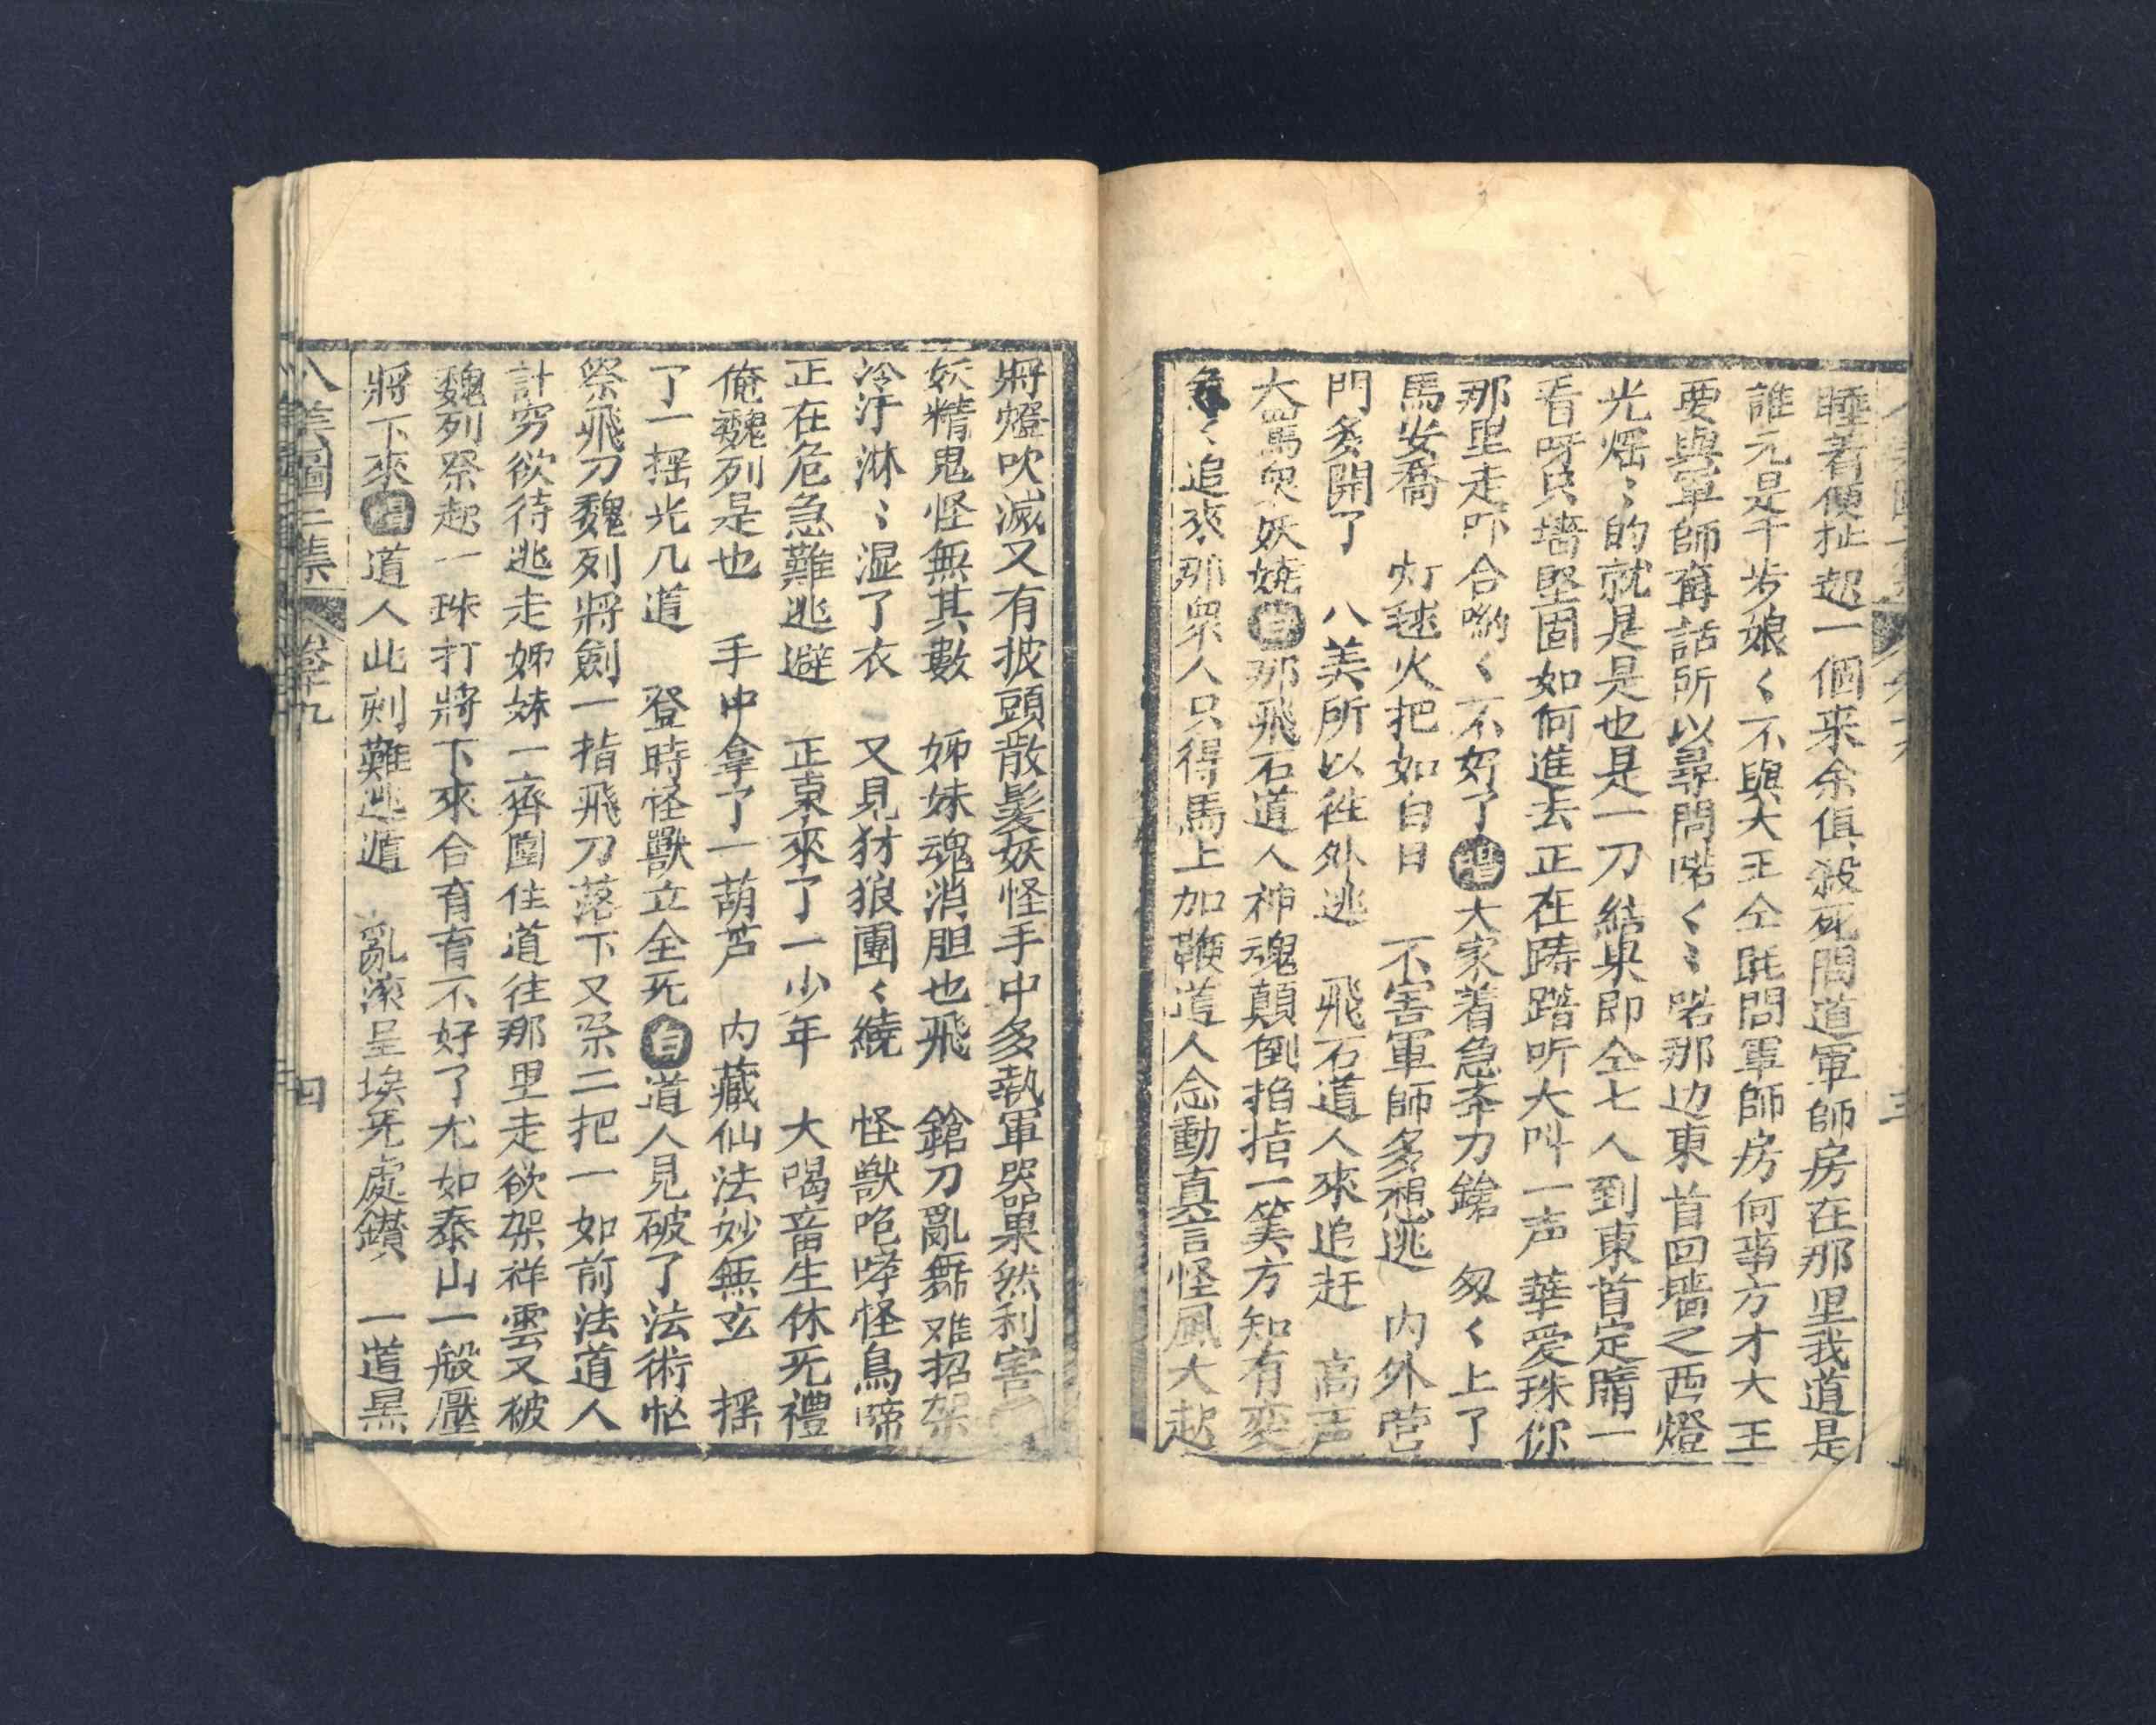 睡着便扯起一個来余俱殺死問道軍師房在那里我道是
誰元是千步娘く不與大王仝眠問軍師房何事方才大王
要與軍師有話所以尋問喏くミ喏那边東首回墻之西燈
光熌ミ的就是是也是一刀結果即仝七人到東首定睛一
看呀只墻堅固如何進去正在躊躇听大叫一声華爱珠你
那里走吓合喲く不好了唱大家着急奉刀鎗　匆く上了
馬安喬　灯毬火把如白日　不害軍師多想逃　内外营
門多開了　八美所以徃外逃　飛石道人來追赶　高声
大罵臭妖娆白那飛石道人神魂顛倒掐指一筭方知有变
急ミ追來那衆人只得馬上加鞭道人念動真言怪風大起
將燈吹滅又有披頭散髮妖怪手中多執軍器果然利害
妖精鬼怪無其數　姊妹魂消胆也飛　鎗刀亂舞难招架
冷汗淋ミ湿了衣　又見犲狼團く繞　怪獸咆哮怪鳥啼
正在危急難逃避　正東來了一少年　大喝畜生休旡禮
俺魏列是也　手中拿了一葫芦　内藏仙法妙無玄　揺
了一揺光几道　登時怪獸立全死白道人見破了法術忙
祭飛刀魏列將劍一指飛刀落下又祭二把一如前法道人
計穷欲待逃走姊妹一齊圍住道往那里走欲架祥雲又被
魏列祭起一珠打將下來合育育不好了尤如泰山一般壓
將下來唱道人此刻難逃遁　亂滾呈埃旡處鑚　一道黑
八美圖二集　卷十九　四